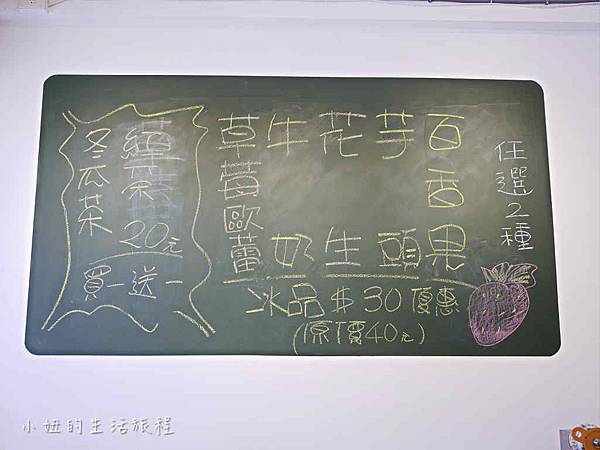 任選2種
百香果
芋頭
花生
牛奶
草莓歐蕾
冰品$30優惠
(原價40元)
紅茶
冬瓜茶
20元
買一送一
小妞的生活旅程